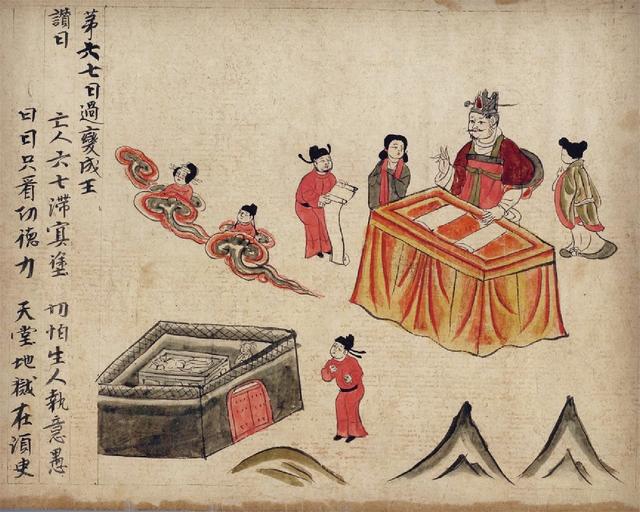 第六七日過變成王
讚曰 亡人六七滯冥塗 切怕生人執意愚
日日只看功德力 天堂地獄在湏臾